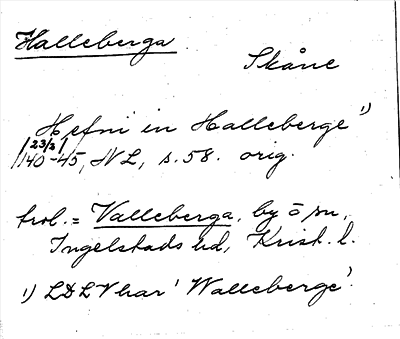 Halleberga
Skåne
Hefni in Halleberge 1)
23/3
1140-45, NL, s. 58. orig.
trol. = Valleberga, by o sn,
Ingelstads hd, Krist. l.
1) LDLV har 'Walleberge'.